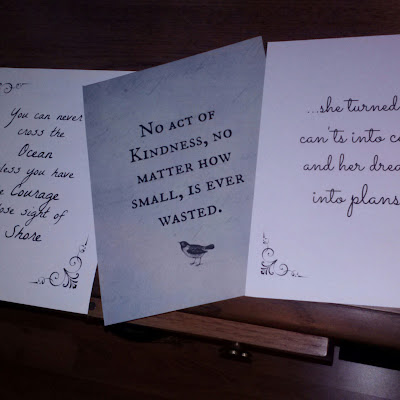 You can never
cross the
Ocean
less you have
Courage
ose sight of
Shore
No act of
Kindness, no
matter how
small, is ever
wasted.
...she turned
can'ts into c
and her drea
into plans